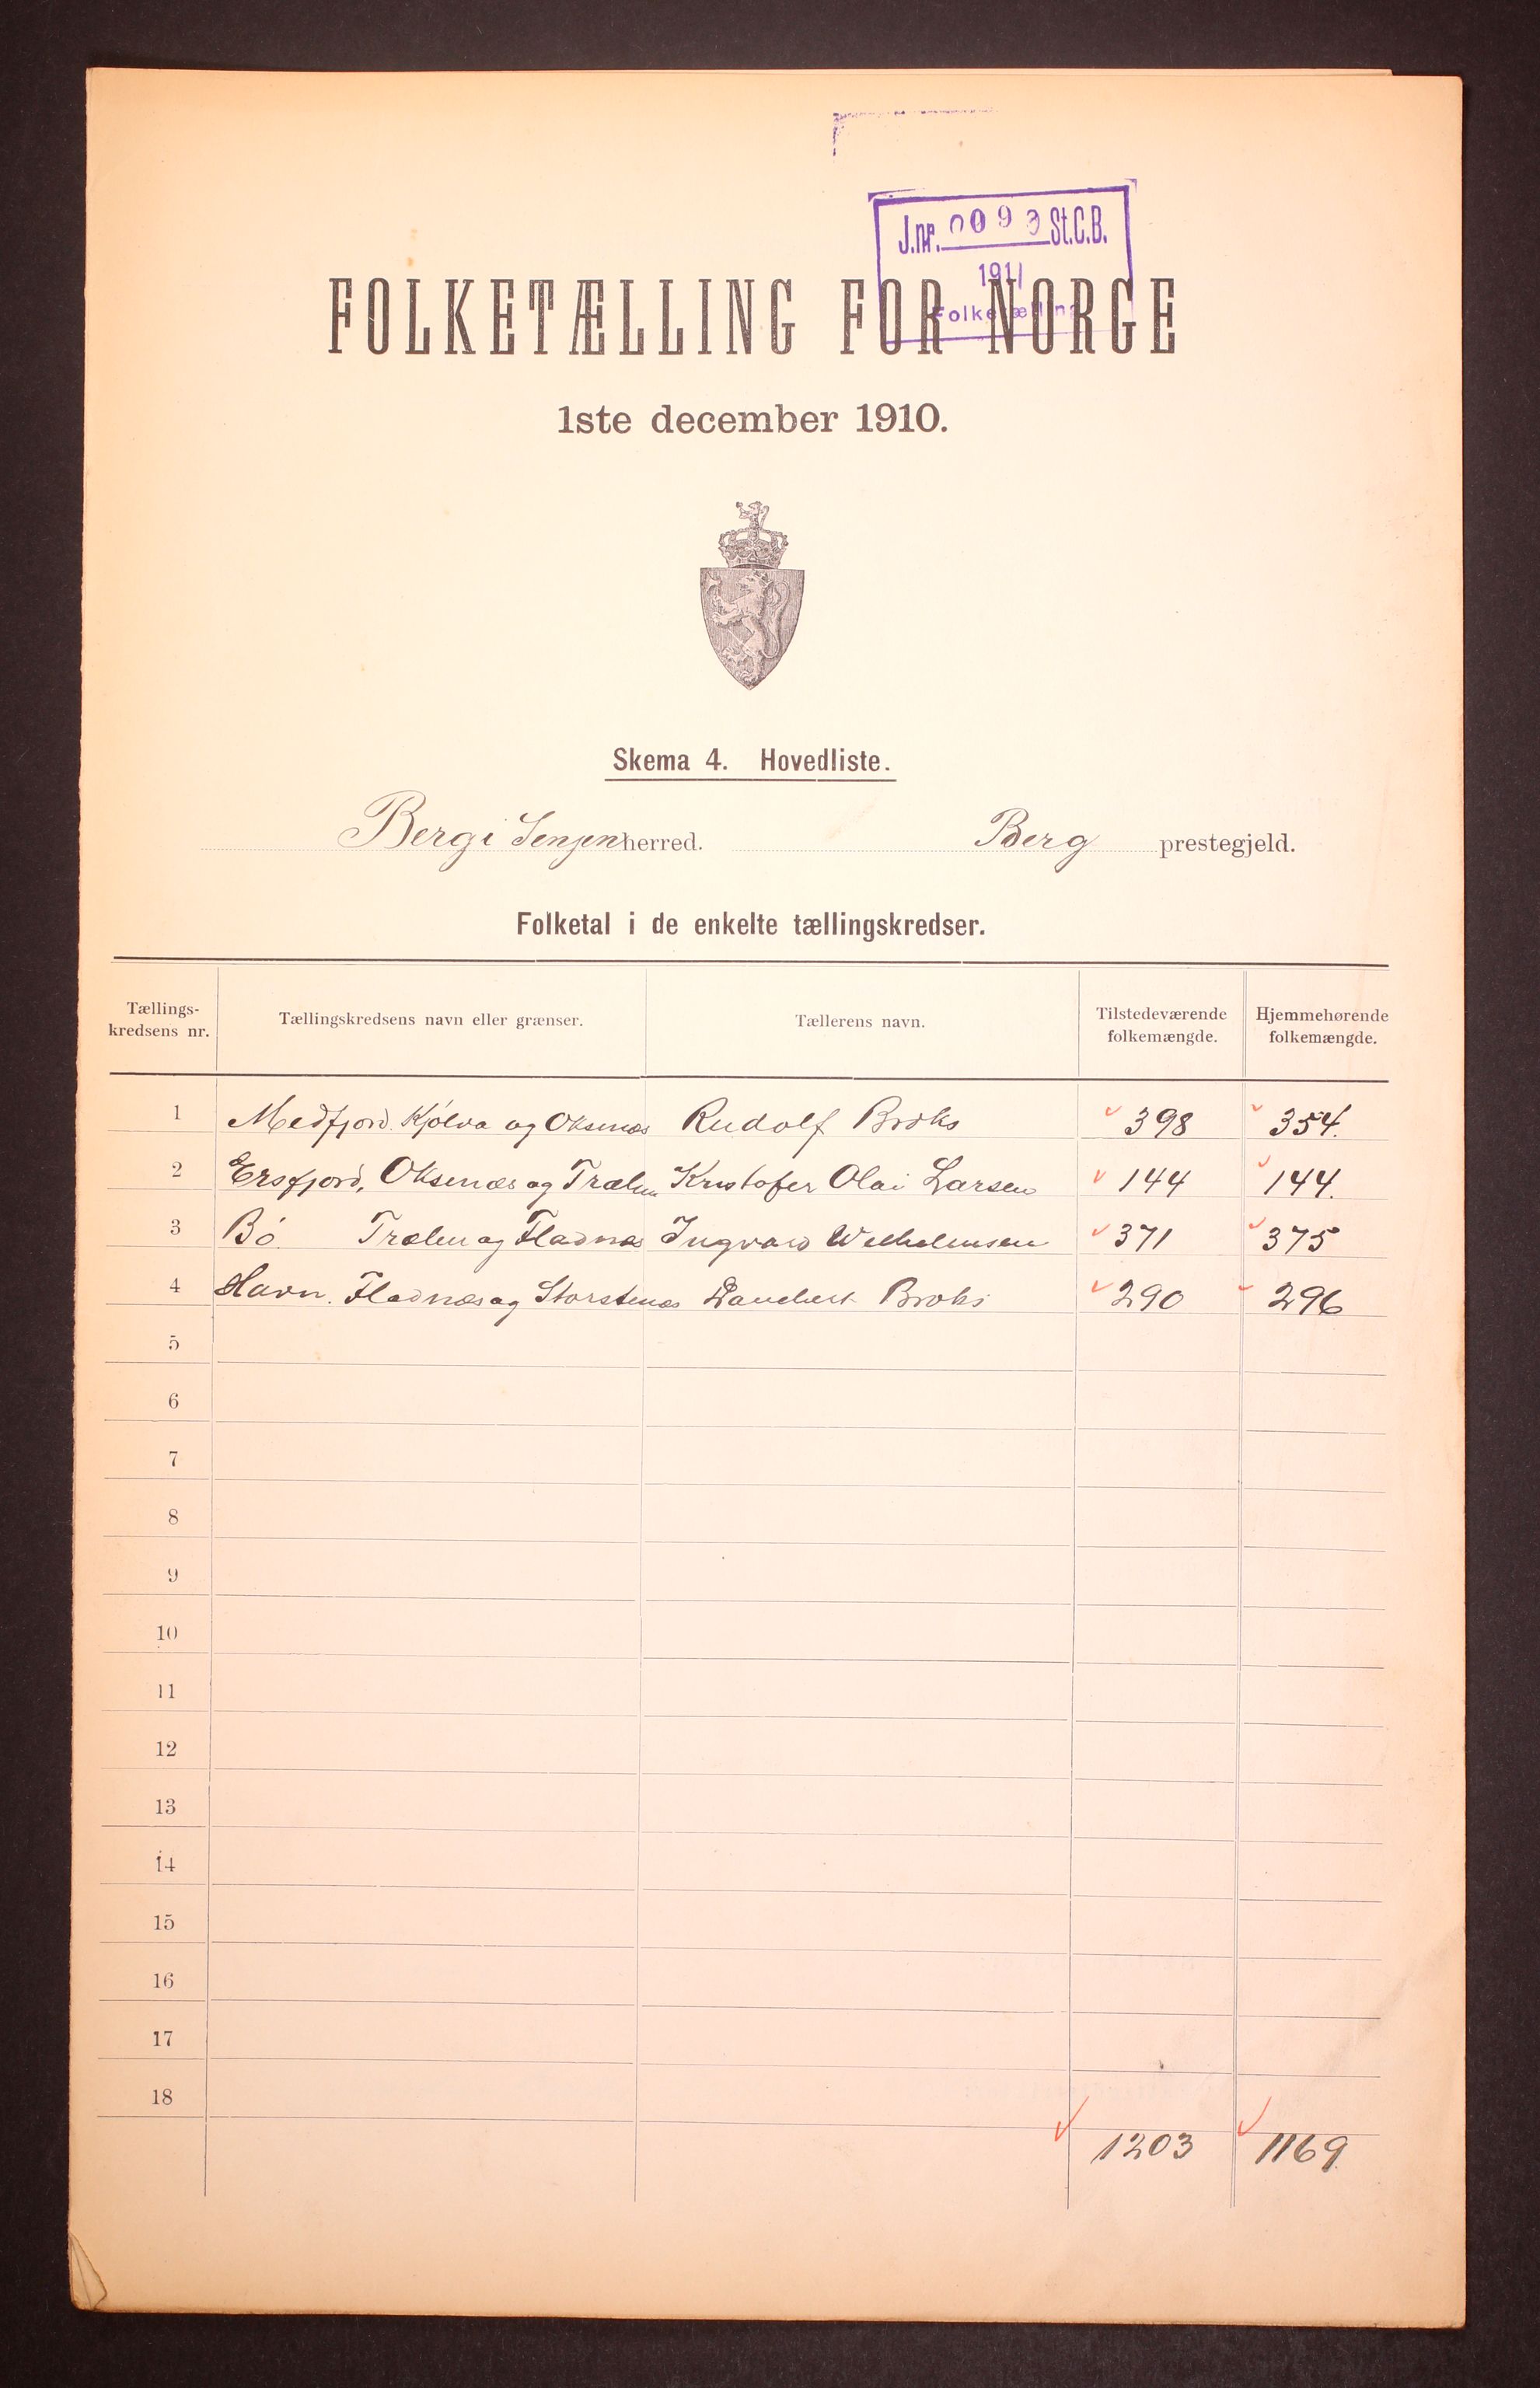 J.nr. 0093 St.C.B.
1911
Folketælling
FOLKETÆLLING FOR NORGE
1ste december 1910.
Skema 4. Hovedliste.
Berg i Senjen herred. Berg prestegjeld.
Folketal i de enkelte tællingskredser.
Tællings-kredsens nr. Tællingskredsens navn eller grænser. Tællerens navn. Tilstedeværende folkemængde. Hjemmehørende folkemængde.
1 Medfjord. Kjölva og Oksenæs Rudolf Broks 398 354.
2 Ersfjord, Oksenæs og Trælen Kristofer Olai Larsen 144 144.
3 Bö Trælen og Fladnæs Ingvard Wilhelmsen 371 375
4 Havn. Fladnæs og Storstenæs Broks 290 296
5
6
7
8
9
10
11
12
13
14
15
16
17
18
1203 1169